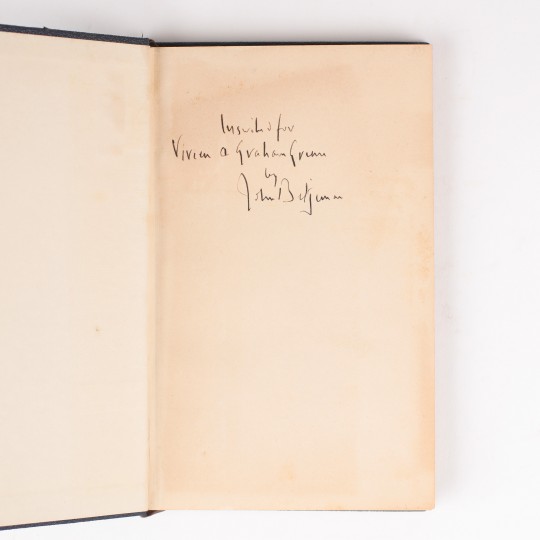 Inscribed for
Vivien & Graham Greene
by
John Betjeman